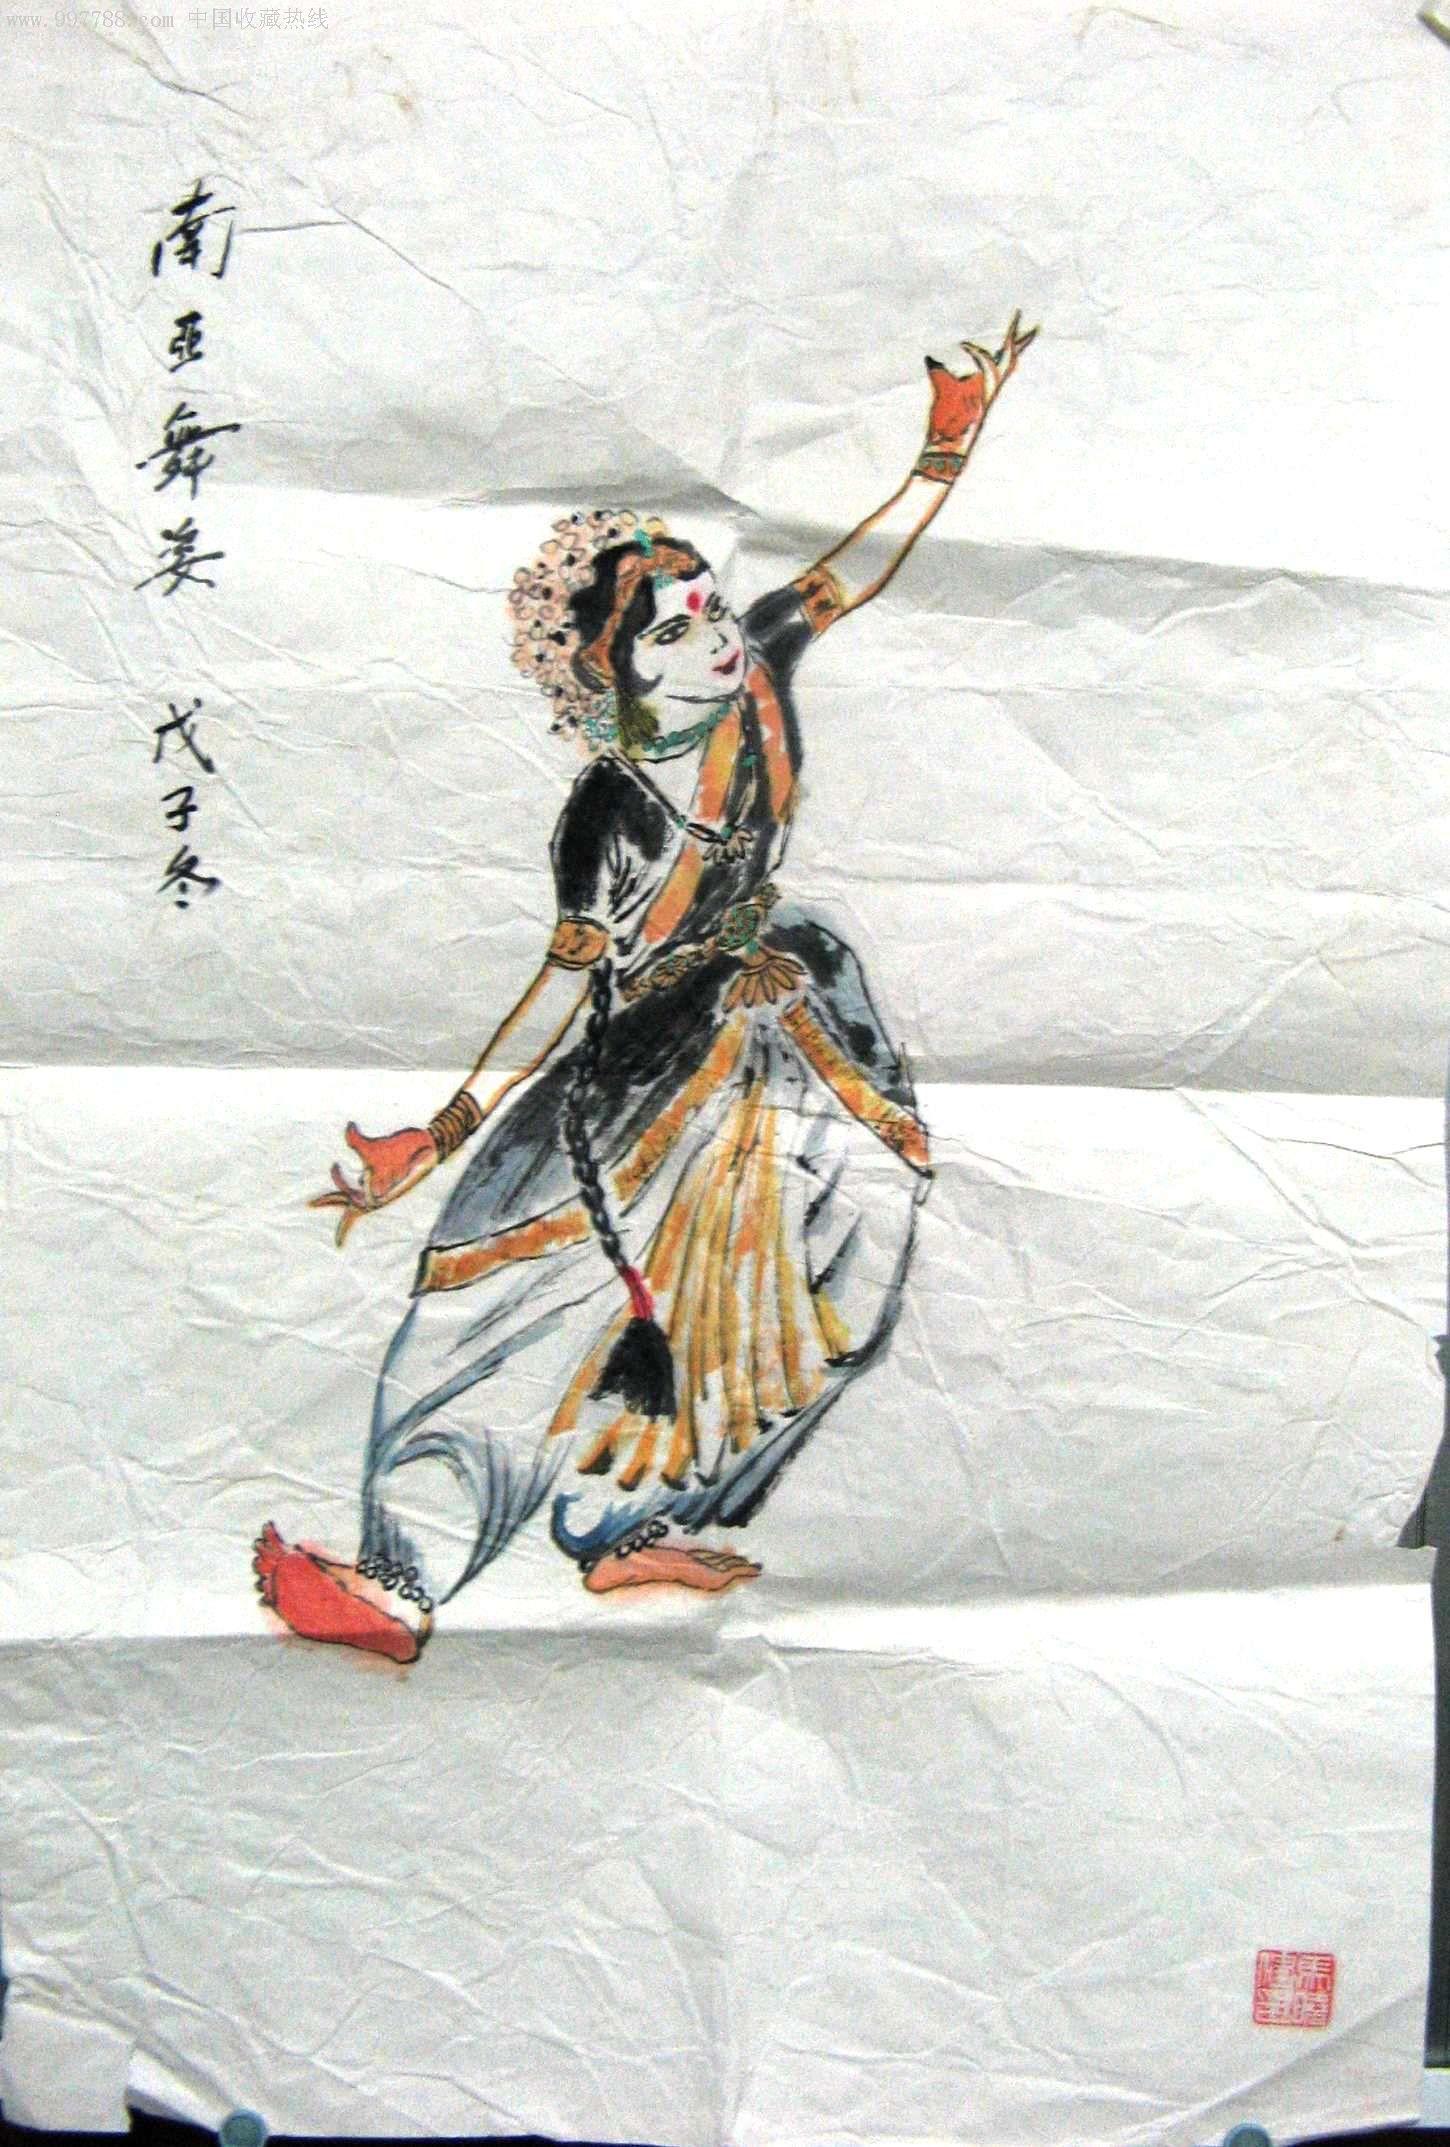 www.997788.com 中国收藏热线
南亚舞姿 戊子冬